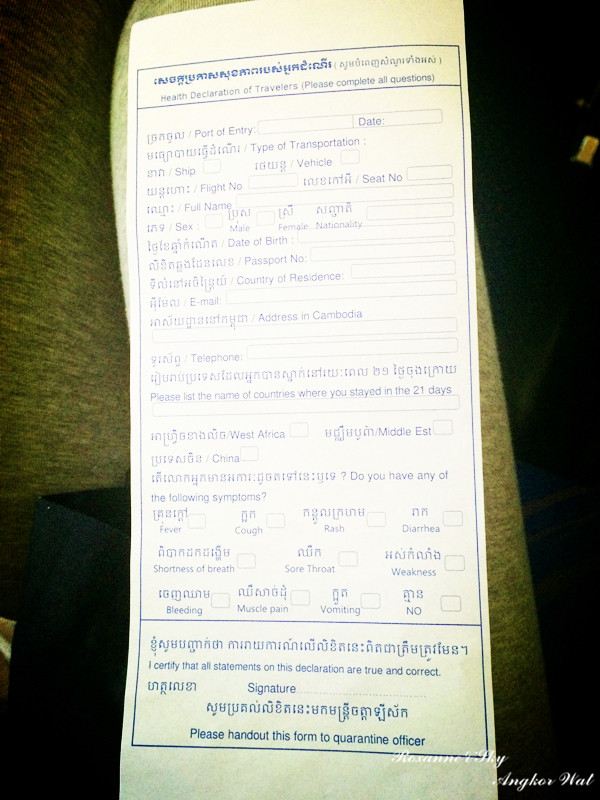 សេចក្តីប្រកាសសុខភាពរបស់អ្នកដំណើរ (សូមបំពេញសំណួរទាំងអស់)
Health Declaration of Travelers (Please complete all questions)
ច្រកចូល / Port of Entry: Date:
មធ្យោបាយធ្វើដំណើរ / Type of Transportation :
នាវា / Ship រថយន្ត / Vehicle
យន្តហោះ / Flight No លេខកៅអី / Seat No
ឈ្មោះ / Full Name
ភេទ / Sex : ប្រុស Male ស្រី Female សញ្ជាតិ Nationality
ថ្ងៃខែឆ្នាំកំណើត / Date of Birth :
លិខិតឆ្លងដែនលេខ / Passport No:
ទីលំនៅអចិន្ត្រៃយ៍ / Country of Residence:
អ៊ីមែល / E-mail:
អាស័យដ្ឋាននៅកម្ពុជា / Address in Cambodia
ទូរស័ព្ទ / Telephone:
រៀបរាប់ប្រទេសដែលអ្នកបានស្នាក់នៅរយៈពេល ២១ ថ្ងៃចុងក្រោយ
Please list the name of countries where you stayed in the 21 days
អាហ្វ្រិចខាងលិច/West Africa មជ្ឈឹមបូព៌ា/Middle Est
ប្រទេសចិន / China
តើលោកអ្នកមានអាការៈដូចតទៅនេះឬទេ ? Do you have any of
the following symptoms?
គ្រុនក្តៅ ក្អក កន្ទួលក្រហម រាក
Fever Cough Rash Diarrhea
ពិបាកដកដង្ហើម ឈឺក អស់កំលាំង
Shortness of breath Sore Throat Weakness
ចេញឈាម ឈឺសាច់ដុំ ក្អួត គ្មាន
Bleeding Muscle pain Vomiting NO
ខ្ញុំសូមបញ្ជាក់ថា ការរាយការណ៍លើលិខិតនេះពិតជាត្រឹមត្រូវមែន។
I certify that all statements on this declaration are true and correct.
ហត្ថលេខា Signature
សូមប្រគល់លិខិតនេះមកមន្ត្រីចត្តាឡីស័ក
Please handout this form to quarantine officer
Roxanne&Sky
Angkor Wat